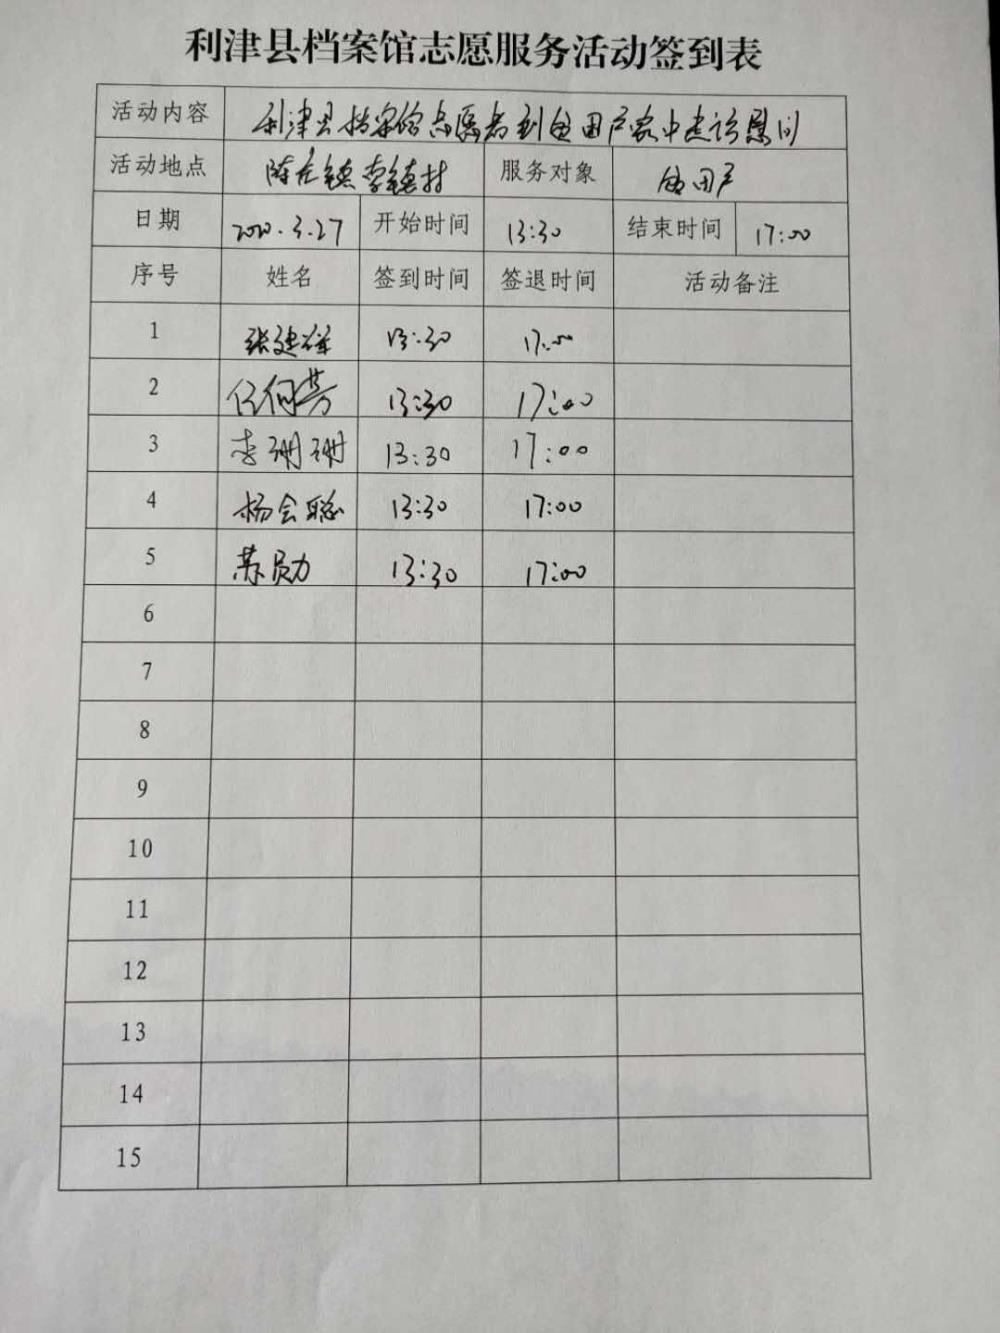 利津县档案馆志愿服务活动签到表
活动内容 利津县档案馆志愿者到困户家中走访慰问
活动地点 陈庄镇李镇村 服务对象 困户
日期 2020.3.27 开始时间 13:30 结束时间 17:00
序号 姓名 签到时间 签退时间 活动备注
1 张建祥 13:30 17:00
2 任何芳 13:30 17:00
3 李珊珊 13:30 17:00
4 杨会聪 13:30 17:00
5 苏勋 13:30 17:00
6
7
8
9
10
11
12
13
14
15